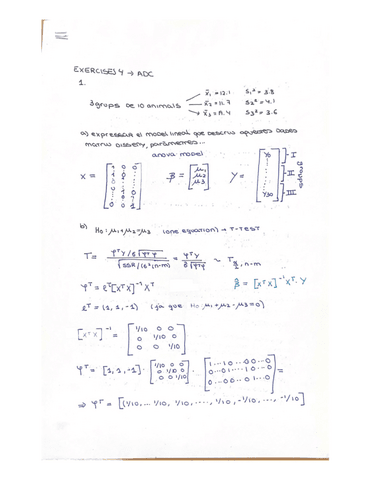 EXERCISES 4 → ADC
1.
x̄₁ = 12.1 S₁² = 3.8
3 grups de 10 animals x̄₂ = 11.7 S₂² = 4.1
S₃² = 3.6
a) expressar el model lineal que descriu aquestes dades
matriu disseny, paràmetres...
anova model
X = [1 0 0 0 1 0 0 0 1] β = [μ₁ μ₂ μ₃] Y = [Y₁₀ Y₃₀] I II III groups
b) H₀: μ₁ + μ₂ = μ₃ (one equation) → T-TEST
T = φᵀY / σ√φᵀφ / √SSR/(σ²(n-m)) = φᵀY / σ̂√φᵀφ ~ T α/2, n-m
φᵀ = εᵀ[XᵀX]⁻¹Xᵀ β̂ = [XᵀX]⁻¹Xᵀ.Y
εᵀ = (1, 1, -1) (ja que H₀: μ₁ + μ₂ - μ₃ = 0)
[XᵀX]⁻¹ = [1/10 0 0 0 1/10 0 0 0 1/10]
φᵀ = [1, 1, -1] · [1/10 0 0 0 1/10 0 0 0 1/10] · [1...1 0...0 0...0 0...0 1...1 0...0 0...0 0...0 1...0] =
⇒ φᵀ = [(1/10, ... 1/10, 1/10, ...., 1/10, -1/10, ..., -1/10]